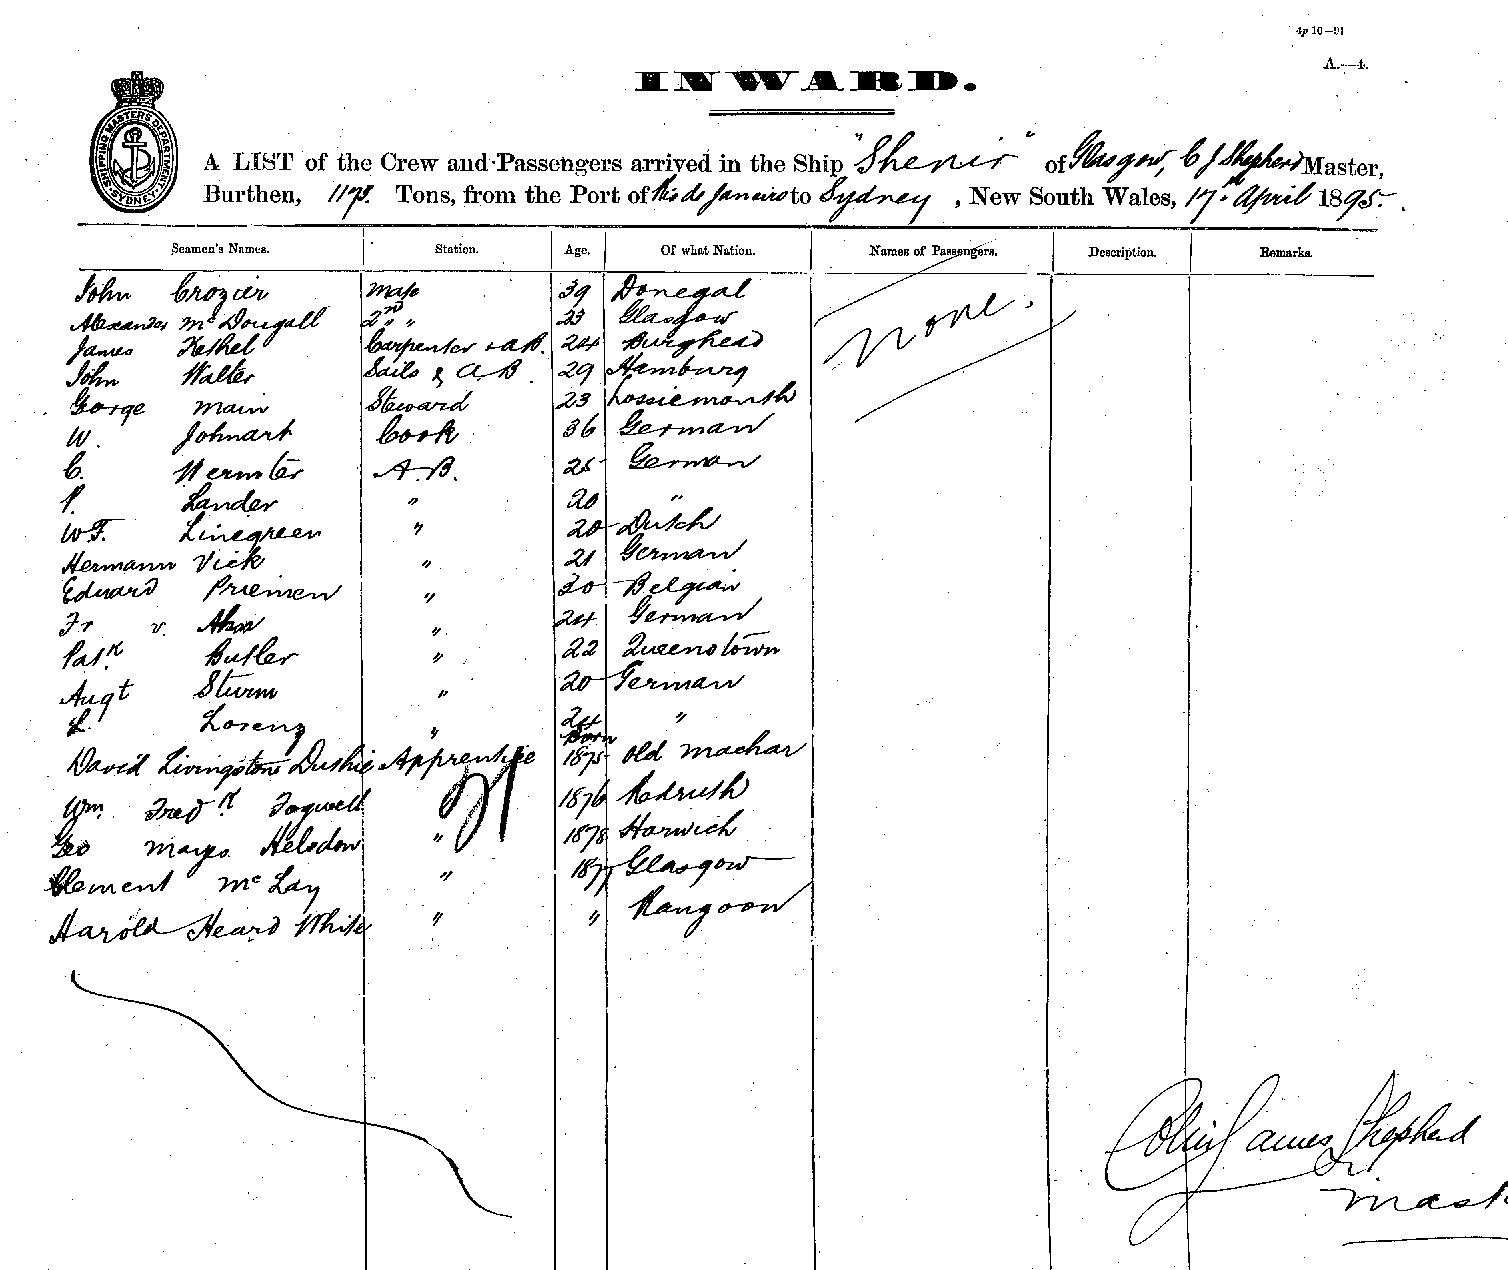 4p 10—91
A.—4.
INWARD.
SHIPPING MASTERS DEPARTMENT SYDNEY
A LIST of the Crew and Passengers arrived in the Ship "Shenir" of Glasgow, C J Shepherd Master,
Burthen, 1178. Tons, from the Port of Rio de Janeiro to Sydney, New South Wales, 17th April 1895.
Seamen's Names. Station. Age. Of what Nation. Names of Passengers. Description. Remarks.
John Crozier Mate 39 Donegal
Alexander McDougall 2nd " 23 Glasgow
None.
James Kethel Carpenter & AB. 24 Burghead
John Walter Sails & A.B. 29 Hamburg
George Main Steward 23 Lossiemouth
W. Johnart Cook 36 German
C. A.B. 25 German
P. Lander " 20 "
W.F. Linegreen " 20 Dutch
Hermann Vick " 21 German
Eduard Priemen " 30 Belgian
Fr v. " 24 German
Patk. Butler " 22 Queenstown
Augt Sturm " 20 German
L. Lorenz " 24 "
Born
David Livingstone Duthie Apprentice 1875 Old Machar
Wm. Fredk Togwell " 1876 Redruth
Geo Mayes Helsdon " 1878 Harwich
Clement McLay " 1877 Glasgow
Harold Heard White " " Rangoon
21
Colin James Shepherd
Mast